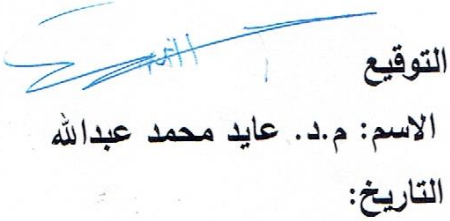 التوقيع
الاسم: م.د. عايد محمد عبدالله
التاريخ: